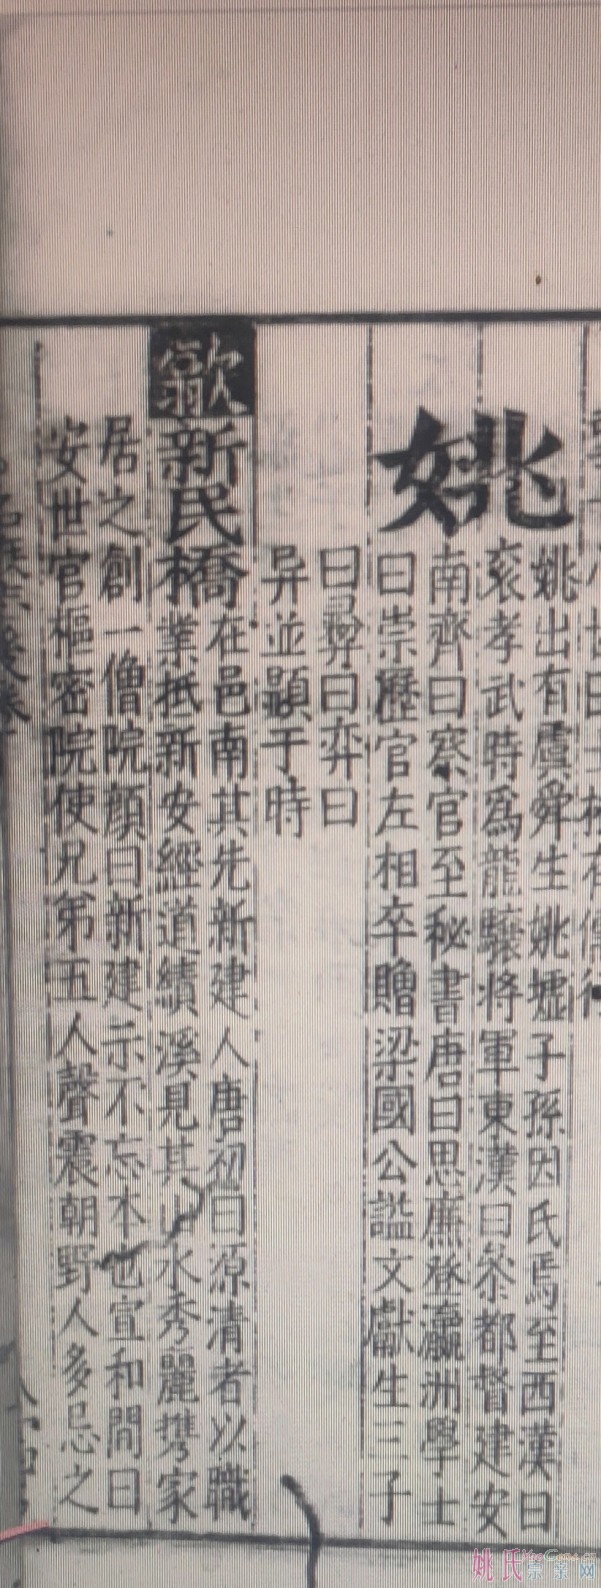 姚
姚出有虞舜生姚墟子孫因氏焉至西漢曰
袞孝武時為龍驤將軍東漢曰叅都督建安
南齊曰察官至秘書唐曰思廉登瀛洲學士
曰崇歷官左相卒贈梁國公謚文獻生三子
曰彛曰弈曰
异並顯于時
歙
新民橋在邑南其先新建人唐初曰源清者以職
業抵新安經道績溪見其山水秀麗携家
居之創一僧院顔曰新建示不忘本也宣和間曰
安世官樞密院使兄弟五人聲震朝野人多忌之
姚氏宗亲网
YaoGens.cn